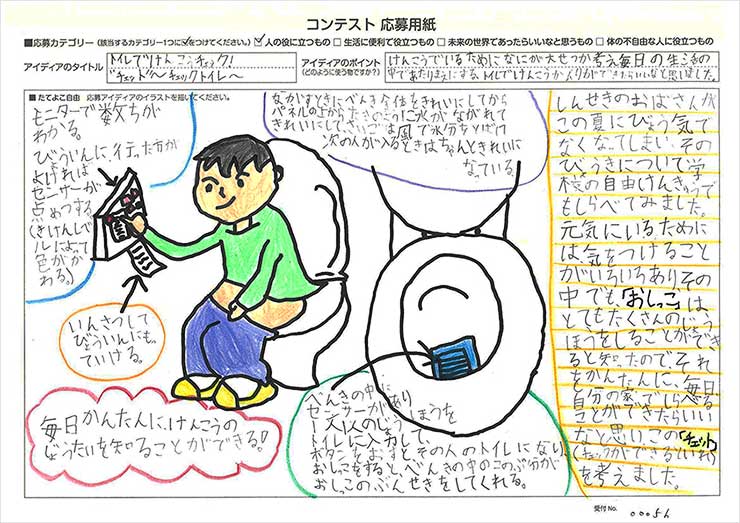 コンテスト 応募用紙
■応募カテゴリー（該当するカテゴリー1つに✓をつけてください。） ☑ 人の役に立つもの □ 生活に便利で役立つもの □ 未来の世界であったらいいなと思うもの □ 体の不自由な人に役立つもの
アイディアのタイトル
トイレでけんこうチェック!
アイディアのポイント
（どのように使う物ですか?）
けんこうでいるためになにが大せつか考え毎日の生活の
■たてよこ自由 応募アイディアのイラストを描いてください。
モニターで数ちが
わかる。
びょういんに行った方が
よければ
センサーが
点めつする
(きけんレベ
ルによって
色がか
わる)
いんさつして
びょういんにもっ
ていける。
毎日かんたんに、けんこうの
じょうたいを知ることができる!
ながすときにべんき全体をきれいにしてから
パネルの上からたきのように水がながれて
きれいにしてさいごは風で水分をとばけ
次の人が入るときはちゃんときれいに
なっている。
べんきの中に
センサーがあり
トイレに入力して
ボタンをおすとその人のトイレになり
おしっこをすると、べんきの中のこのぶ分が
おしっこのぶんせきをしてくれる。
しんせきのおばさんが
この夏にびょう気で
なくなってしまい、その
びょうきについて学
校の自由けんきゅうで
もしらべてみました。
元気にいるために
は、気をつけること
がいろいろありその
中でも「おしっこ」は
とてもたくさんのじょう
ほうをしることができ
ると知ったので、それ
をかんたんに、毎日、
自分の家でしらべる
ことができたらいい
なと思い、この「チェット」
(チェックができるといれ)
を考えました。
受付 No. 00056